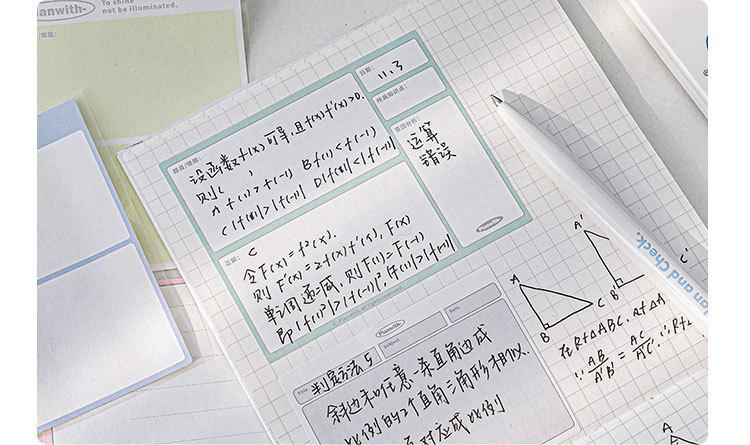 Planwith-
To shine
not be illuminated.
题目/错题:
设函数f(x)可导,且f(x)f'(x)>0.
则( )
A f(1)>f(-1) B f(1)<f(-1)
C |f(1)|>|f(-1)| D |f(1)|<|f(-1)|
日期:
11.3
所属知识点:
原因分析:
运算
错误
Planwith-
正解:
C
令F(x)=f²(x).
则F'(x)=2f(x)f'(x), F(x)
单调递减,则F(1)=F(-1)
即|f(1)|²>|f(-1)|²,|f(1)|>|f(-1)|
© Planwith all rights reserved.
Planwith-
Title.
判定方法5
Subject.
Date.
斜边和任意一条直角边成
比例的2个直角三角形相似..
对应成比例
A
B
C
A'
B'
C'
在Rt△ABC.
∵AB/A'B'=AC/A'C'
∴Rt
A
lan and Check.